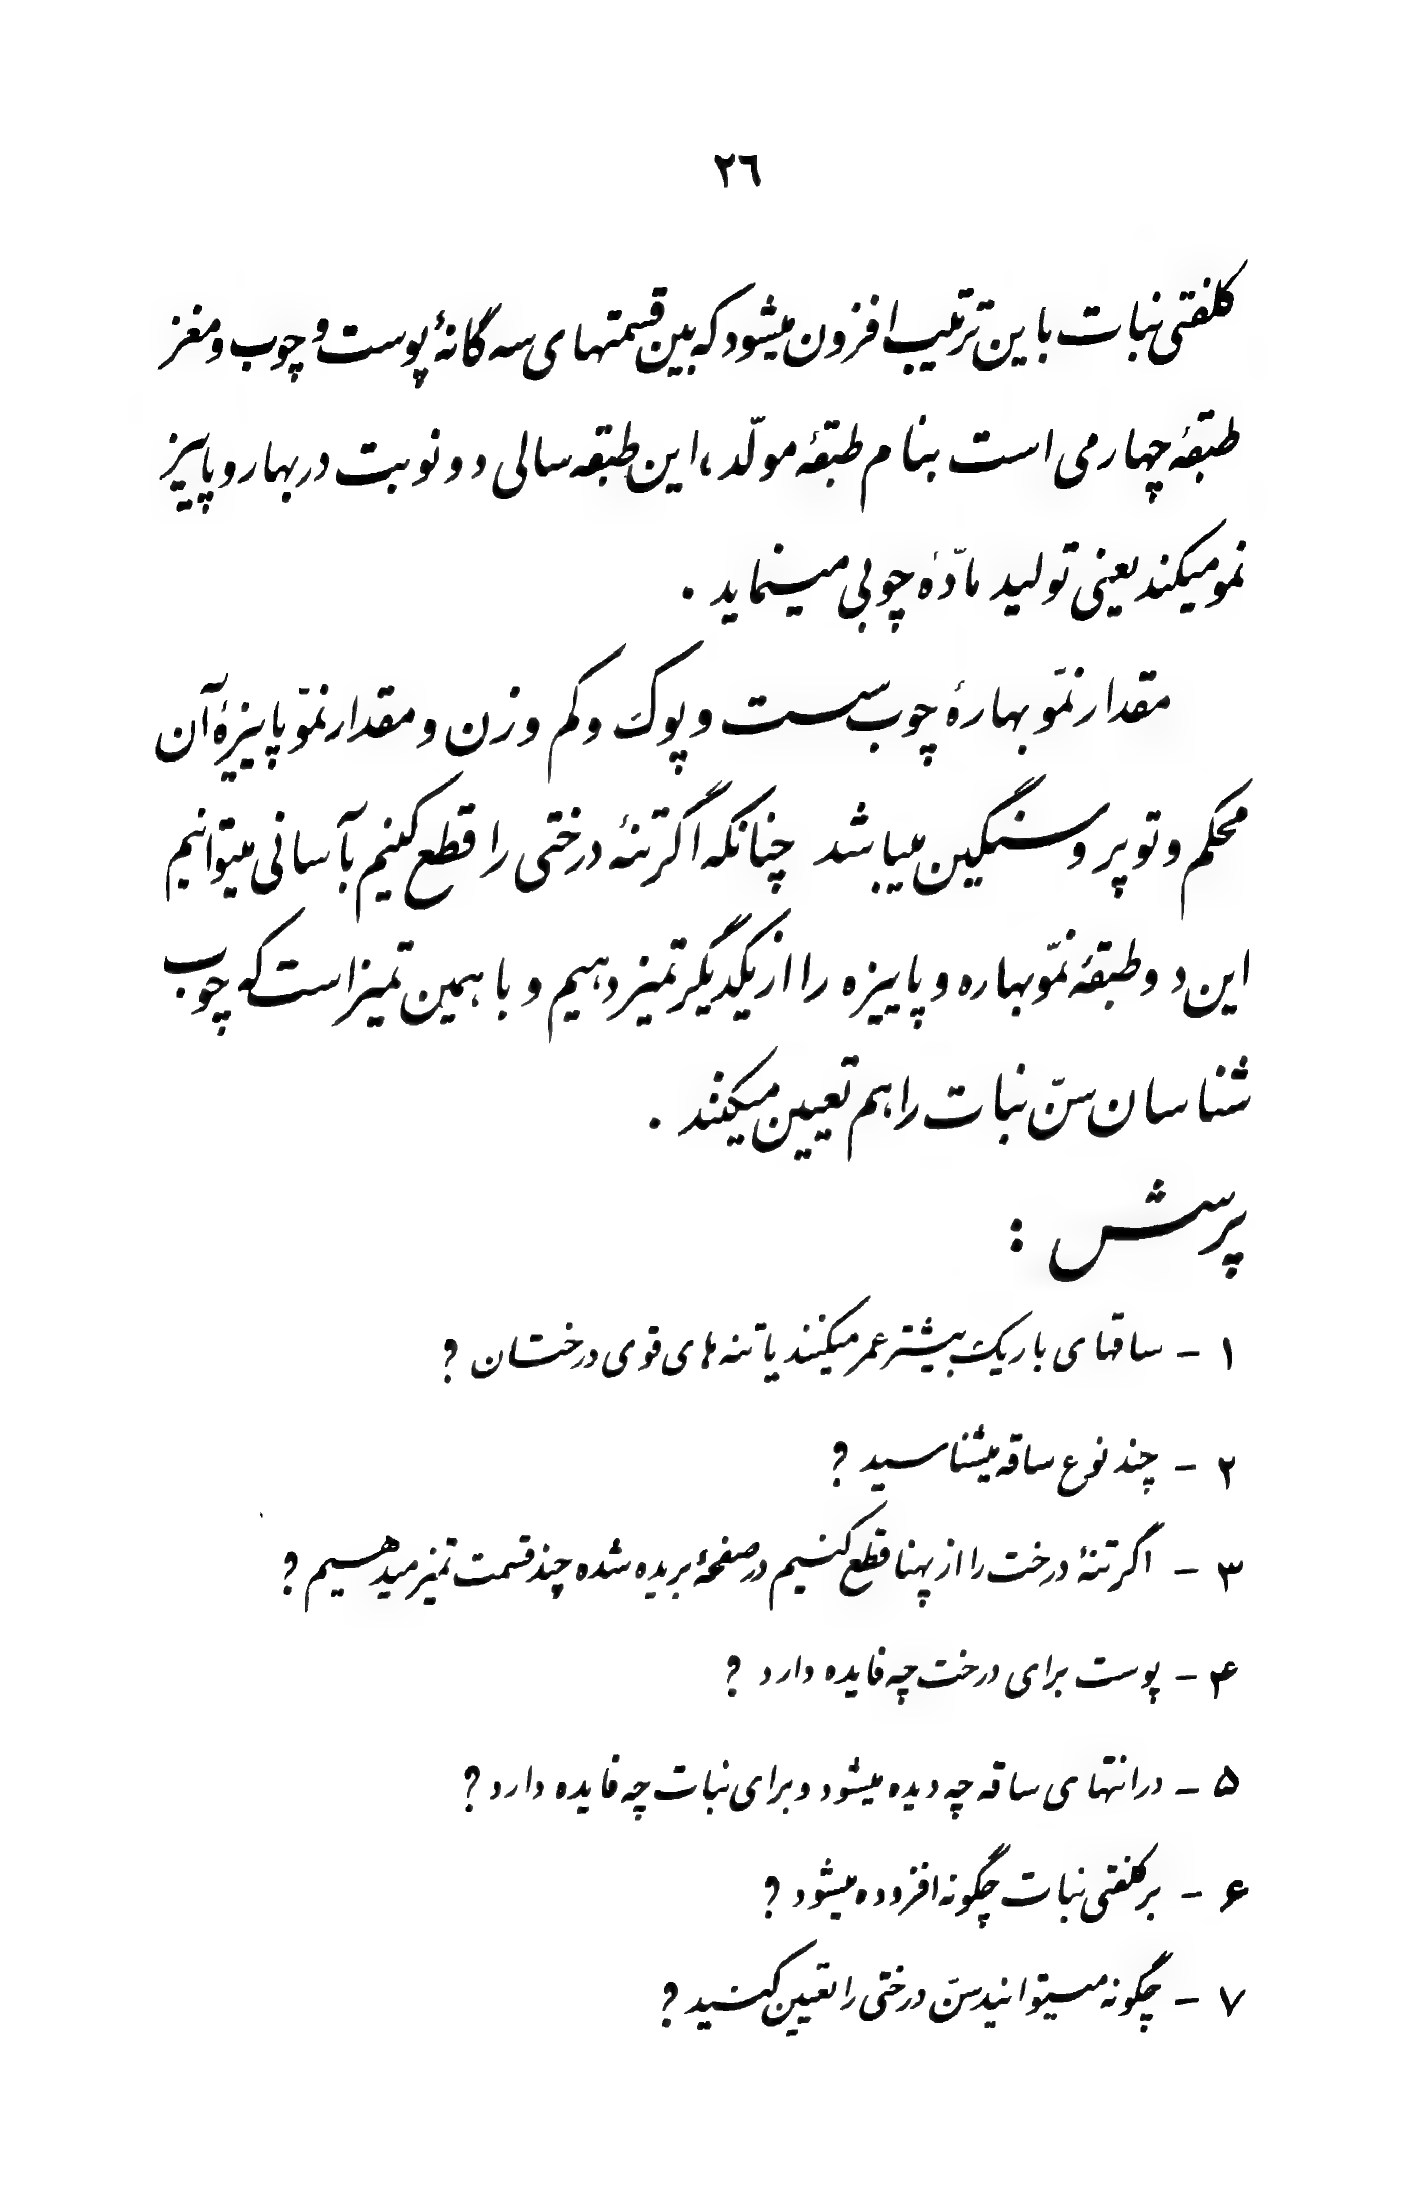 ۲٦
کلفتی نبات باین ترتیب افزون میشود که بین قسمتهای سه گانهٔ پوست و چوب و مغز
طبقهٔ چهارمی است بنام طبقهٔ مولّد ، این طبقه سالی دو نوبت در بهار و پاییز
نمو میکند یعنی تولید مادّهٔ چوبی مینماید .
مقدار نموّ بهارهٔ چوب سست و پوک و کم وزن و مقدار نموّ پاییزهٔ آن
محکم و توپر و سنگین میباشد چنانکه اگر تنهٔ درختی را قطع کنیم بآسانی میتوانیم
این دو طبقهٔ نموّ بهاره و پاییزه را از یکدیگر تمیز دهیم و با همین تمیز است که چوب
شناسان سنّ نبات را هم تعیین میکنند .
پرسش :
۱ - ساقهای باریک بیشتر عمر میکنند یا تنه های قوی درختان ؟
۲ - چند نوع ساقه میشناسید ؟
۳ - اگر تنهٔ درخت را از پهنا قطع کنیم در صفحهٔ بریده شده چند قسمت تمیز میدهیم ؟
۴ - پوست برای درخت چه فایده دارد ؟
۵ - در انتهای ساقه چه دیده میشود و برای نبات چه فایده دارد ؟
۶ - بر کلفتی نبات چگونه افزوده میشود ؟
۷ - چگونه میتوانید سنّ درختی را تعیین کنید ؟